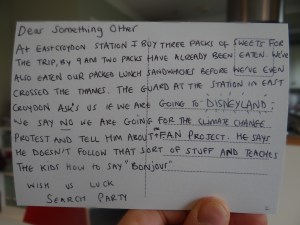 Dear Something Other
At East Croydon Station I buy three packs of sweets for
the trip, by 9am two packs have already been eaten. We've
also eaten our packed lunch sandwiches before we've even
crossed the Thames. The guard at the station in East
Croydon asks us if we are going to DISNEYLAND:
we say no we are going for the climate change
protest and tell him about FAN PROJECT. He says
he doesn't follow that sort of stuff and teaches
the kids how to say "Bonjour"
Wish us luck
Search Party